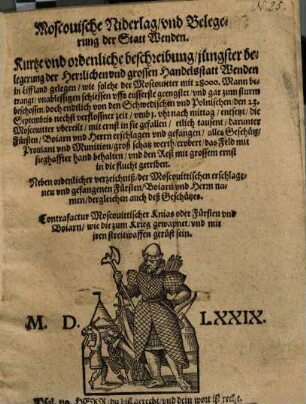 N. 25.
Moscouische Niderlag/vnd Belege-
rung der Statt Wenden.
Kurtze vnd ordenliche beschreibung/jüngster be-
legerung der Herrlichen vnd grossen Handelsstatt Wenden
in Liffland gelegen/wie solche der Moscouiter mit 18000. Mann be-
rrangt/vnablessigen schiessen offts eusserste geengstet/vnd gar zum sturm
beschossen doch endtlich von den Schwedischen vnd Polnischen/den 23.
Septembris nechst verflossner zeit/vmb 3. vhr nach mittag/entsetzt/die
Moscouitter vbereilt/mit ernst in sie gefallen/etlich tausent/darunter
Fürsten/Boiarn vnd Herrn erschlagen vnd gefangen/alles Geschütz/
Prouiant vnd Munition/groß schatz werth/erobert/das Feld mit
sieghaffter hand behalten/vnd den Rest mit grossem ernst
in die flucht getriben.
Neben ordenlicher verzeichniß/der Moscouittischen erschlage-
nen vnd gefangenen Fürsten/Boiarn vnd Herrn na-
men/dergleichen auch deß Geschützes.
Contrafactur Moscouittischer Knias oder Fürsten vnd
Boiarn/wie die zum Krieg gewapnet/vnd mit
jren streitwaffen gerüst sein.
M. D. LXXIX.
HERR/du bist gerecht/vnd dein wort ist recht.